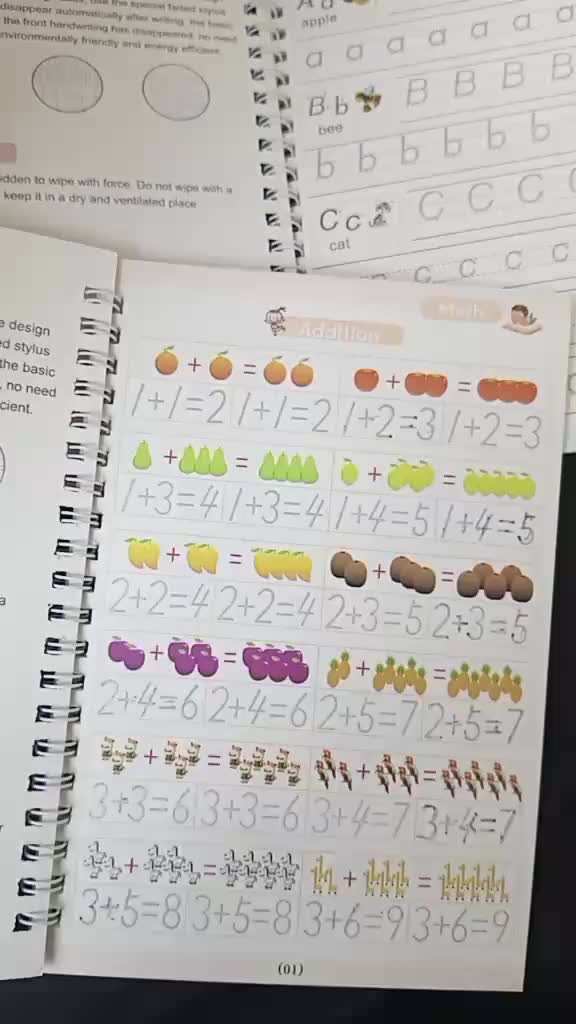 disappear automatically after writing, the basic
the front handwriting has disappeared, no need
nvironmentally friendly and energy efficient.
dden to wipe with force. Do not wipe with a
keep it in a dry and ventilated place
apple
a a a a a a a
B b B B B B
bee
b b b b b b
C c C C C
cat
c c c c
e design
ed stylus
the basic
, no need
cient.
Math
Addition
+ = + =
1+1=2 1+1=2 1+2=3 1+2=3
+ = + =
1+3=4 1+3=4 1+4=5 1+4=5
+ = + =
2+2=4 2+2=4 2+3=5 2+3=5
+ = + =
2+4=6 2+4=6 2+5=7 2+5=7
+ = + =
3+3=6 3+3=6 3+4=7 3+4=7
+ = + =
3+5=8 3+5=8 3+6=9 3+6=9
(01)